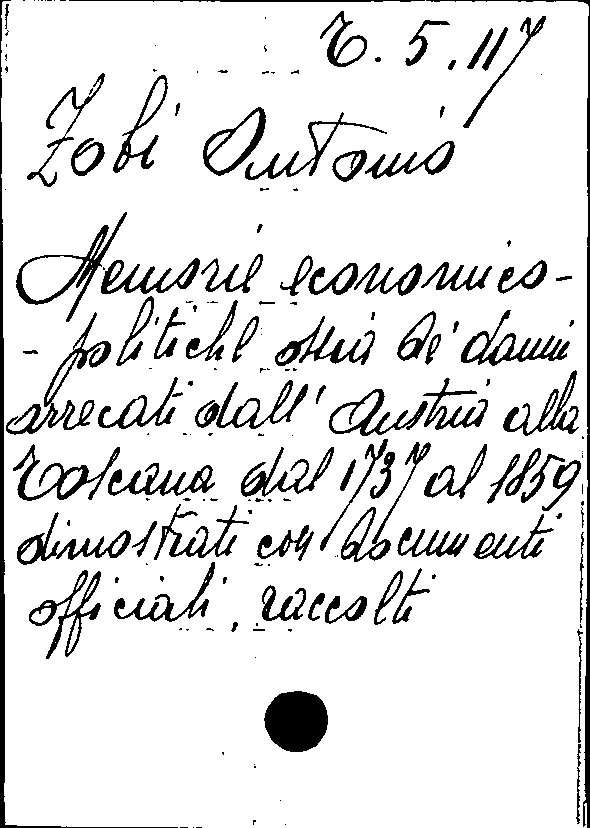 T. 5. 117
Zobi Antonio
Memorie economico-
- politiche ossia de' danni
arrecati dall' Austria alla
Toscana dal 1737 al 1859
dimostrati con documenti
officiali, raccolti